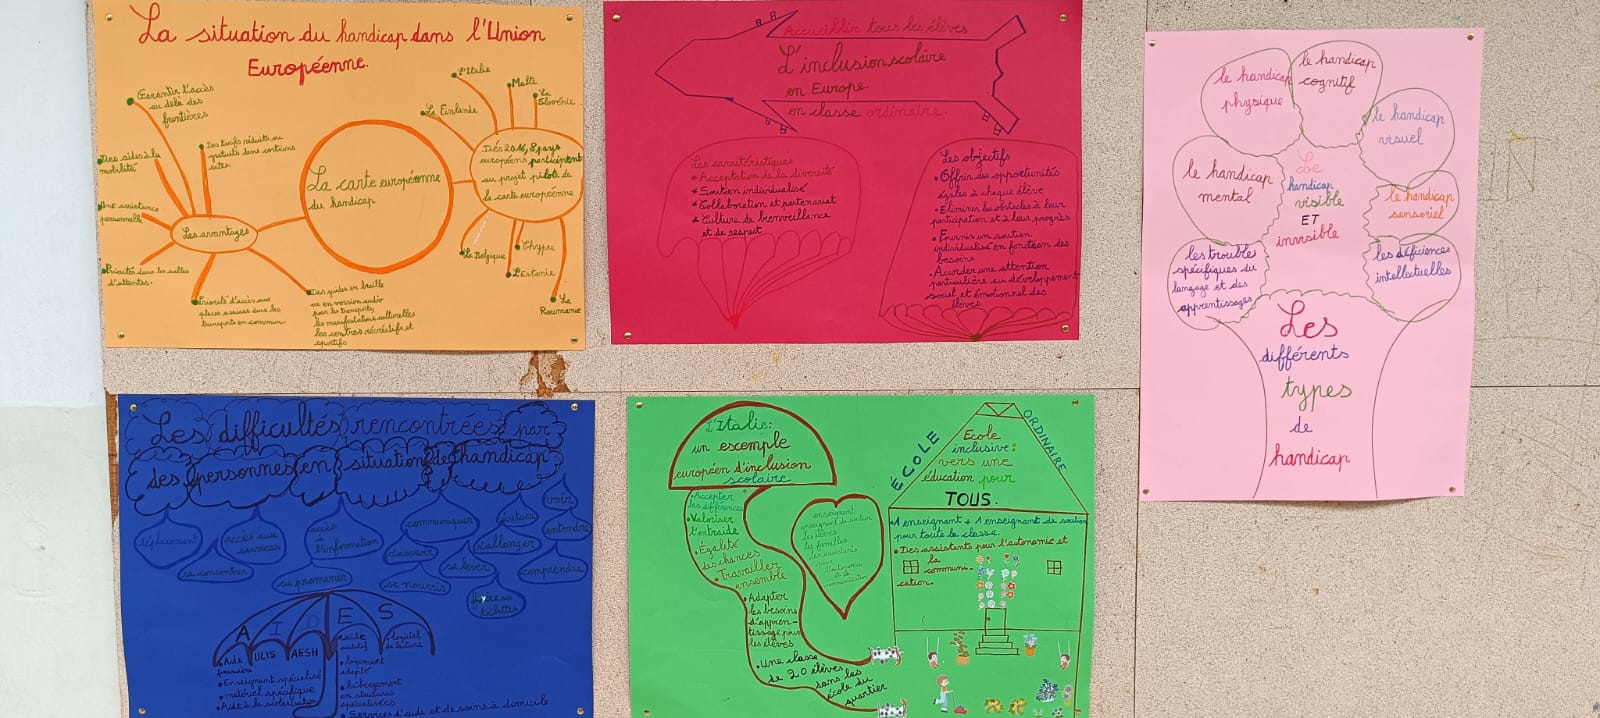 La situation du handicap dans l'Union
Européenne.
Garantir l'accès
au delà des
frontières
Des tarifs réduits ou
gratuits dans certains
sites.
Des aides à la
mobilité
Une assistance
personnelle
Les avantages
Priorités dans les salles
d'attentes.
Priorité d'accès aux
places assises dans les
transports en commun
Des guides en braille
ou en version audio
pour les transports,
les manifestations culturelles
les centres récréatifs et
sportifs
La carte européenne
du handicap
L'Italie
Malte
La
Slovénie
La Finlande
Dès 2016, 8 pays
européens participent
au projet pilote de
la carte européenne
La Belgique
Chypre
L'Estonie
La
Roumanie
Accueillir tous les élèves
L'inclusion scolaire
en Europe
en classe ordinaire.
Les caractéristiques
Acceptation de la diversité
* Soutien individualisé
* Collaboration et partenariat
* Culture de bienveillance
et de respect
Les objectifs
Offrir des opportunités
égales à chaque élève
Eliminer les obstacles à leur
participation et à leur progrès
Fournir un soutien
individualisé en fonction des
besoins
Accorder une attention
particulière au développement
social et émotionnel des
élèves
le handicap
physique
le handicap
cognitif
le handicap
visuel
le handicap
mental
le handicap
sensoriel
les troubles
spécifiques du
langage et des
apprentissages
les déficiences
intellectuelles
Le
handicap
visible
ET
invisible
Les
différents
types
de
handicap
Les difficultés rencontrées par
des personnes en situation de handicap
déplacement
accès aux
services
accès
à
l'information
communiquer
écriture
voir
entendre
se rencontrer
se promener
s'asseoir
se nourrir
se laver
s'allonger
comprendre
faire ses
toilettes
AIDES
ULIS
AESH
Aide
financière
Enseignant spécialisé
matériel spécifique
Aide à la scolarisation
aide
auditif
logiciel
de lecture
logement
adapté
hébergement
en structures
spécialisées
Services d'aide et de soins à domicile
L'Italie:
un exemple
européen d'inclusion
scolaire
Accepter
les différences
Valoriser
l'entraide
Égalité
des chances
Travailler
ensemble
Adapter
les besoins
d'appren-
tissage pour
les élèves
Une classe
de 20 élèves
dans les
école du
quartier
enseignant
enseignant de soutien
les élèves
les familles
les assistants
pour
l'autonomie
et la
communication
ÉCOLE
ORDINAIRE
Ecole
inclusive:
vers une
éducation pour
TOUS.
1 enseignant + 1 enseignant de soutien
pour toute la classe.
Des assistants pour l'autonomie et
la
communi-
cation.